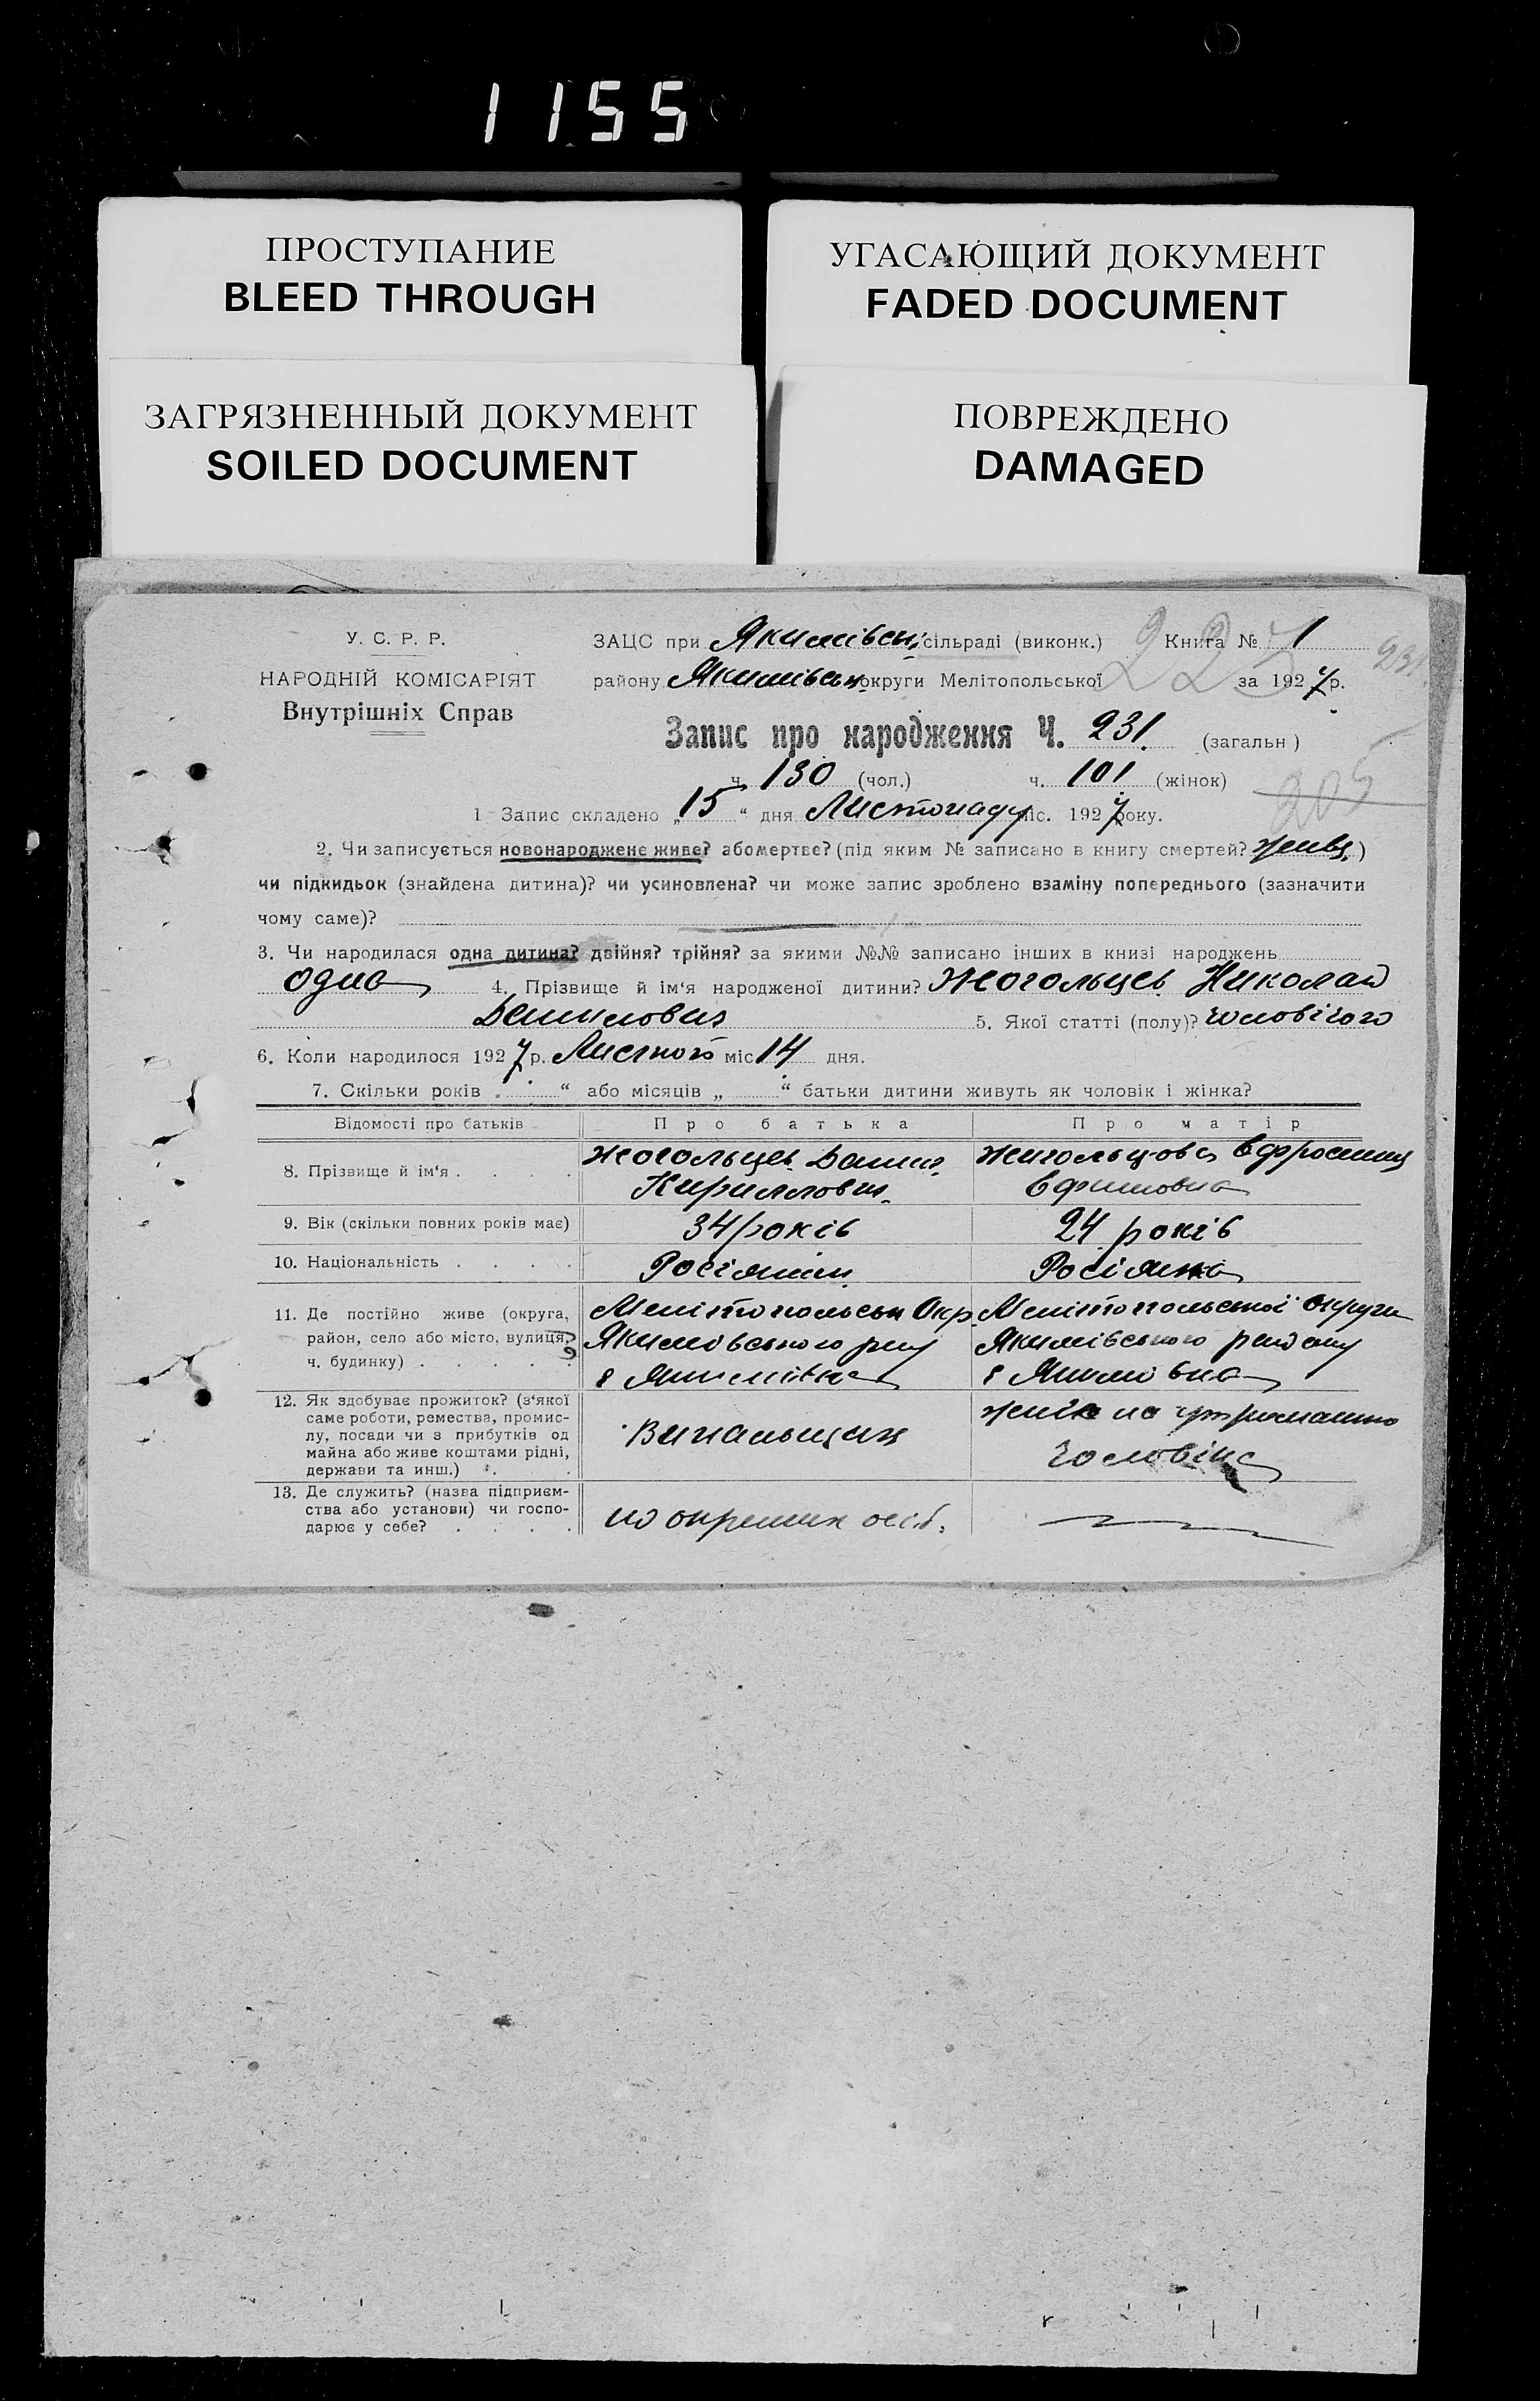 1155
ПРОСТУПАНИЕ
BLEED THROUGH
УГАСАЮЩИЙ ДОКУМЕНТ
FADED DOCUMENT
ЗАГРЯЗНЕННЫЙ ДОКУМЕНТ
SOILED DOCUMENT
ПОВРЕЖДЕНО
DAMAGED
У. С. Р. Р.
НАРОДНІЙ КОМІСАРІЯТ
Внутрішніх Справ
ЗАЦС при Якимівськ. сільраді (виконк.) Книга № 1
району Якимівськ. округи Мелітопольської за 1927 р.
225
231
Запис про народження Ч. 231. (загальн)
ч. 130 (чол.) ч. 101 (жінок)
205
1 Запис складено „15“ дня Листопаду міс. 1927 року.
2. Чи записується новонароджене живе? або мертве? (під яким № записано в книгу смертей? живе.)
чи підкидьок (знайдена дитина)? чи усиновлена? чи може запис зроблено взаміну попереднього (зазначити
чому саме)?
3. Чи народилася одна дитина? двійня? трійня? за якими №№ записано інших в книзі народжень
одна 4. Прізвище й ім'я народженої дитини? Жогольцев Николай
Данилович 5. Якої статті (полу)? чоловічого
6. Коли народилося 1927 р. Листопо міс 14 дня.
7. Скільки років „ “ або місяців „ “ батьки дитини живуть як чоловік і жінка?
Відомості про батьків Про батька Про матір
8. Прізвище й ім'я . . . . Жогольцев Данил Кириллович. Жигольцова Ефросиния Ефимовна
9. Вік (скільки повних років має) 34 років 24 років
10. Національність . . . . Росіянин Росіянка
11. Де постійно живе (округа,
район, село або місто, вулиця,
ч. будинку) . . . . .
Мелітопольськ Окр.
Якимовського рну
Якимівка
Мелітопольської округи
Якимівського району
Якимовка
12. Як здобуває прожиток? (з'якої
саме роботи, ремества, промис-
лу, посади чи з прибутків од
майна або живе коштами рідні,
держави та инш.) . .
живе на утриманню
чоловіка
13. Де служить? (назва підприєм-
ства або установи) чи госпо-
дарює у себе? . . . .
по окремих осіб.